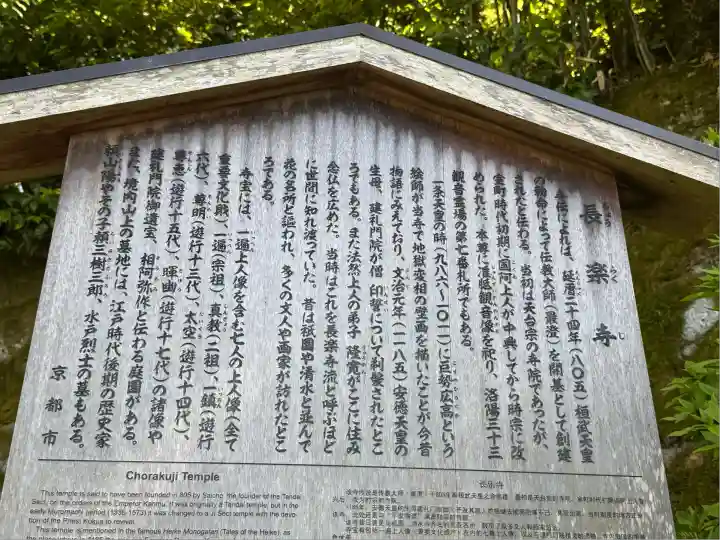 長楽寺
寺伝によれば、延暦二十四年(八〇五)桓武天皇
の勅命によって伝教大師(最澄)を開基として創建
されたと伝わる。当初は天台宗の寺院であったが、
室町時代初期に国阿上人が中興してから時宗に改
められた。本尊に准胝観音像を祀り、洛陽三十三
観音霊場の第七番札所でもある。
一条天皇の時(九八六~一〇一一)に巨勢広高という
絵師が当寺で地獄変相の壁画を描いたことが今昔
物語にみえており、文治元年(一一八五)安徳天皇の
生母、建礼門院が僧 印誓について剃髪されたとこ
ろでもある。また法然上人の弟子 隆寛がここに住み
念仏を広めた。当時はこれを長楽寺流と呼ぶほど
に世間に知れ渡っていた。昔は祇園や清水と並んで
花の名所と謳われ、多くの文人や画家が訪れたとこ
ろである。
寺宝には、一遍上人像を含む七人の上人像(全て
重要文化財)、一遍(宗祖)、真教(二祖)、一鎮(遊行
六代)、尊明(遊行十三代)、太空(遊行十四代)、
尊恵(遊行十五代)、暉幽(遊行十七代)の諸像や
建礼門院御遺宝、相阿弥作と伝わる庭園がある。
また、境内山上の墓地には、江戸時代後期の歴史家
頼山陽やその子頼三樹三郎、水戸烈士の墓もある。
京都市
Chorakuji Temple
This temple is said to have been founded in 805 by Saicho, the founder of the Tendai
Sect, on the orders of the Emperor Kanmu. It was originally a Tendai temple, but in the
early Muromachi period (1336-1573) it was changed to a Ji Sect temple with the devo-
tion of the Priest Kokua to revival.
This temple is mentioned in the famous Heike Monogatari (Tales of the Heike), as
长乐寺